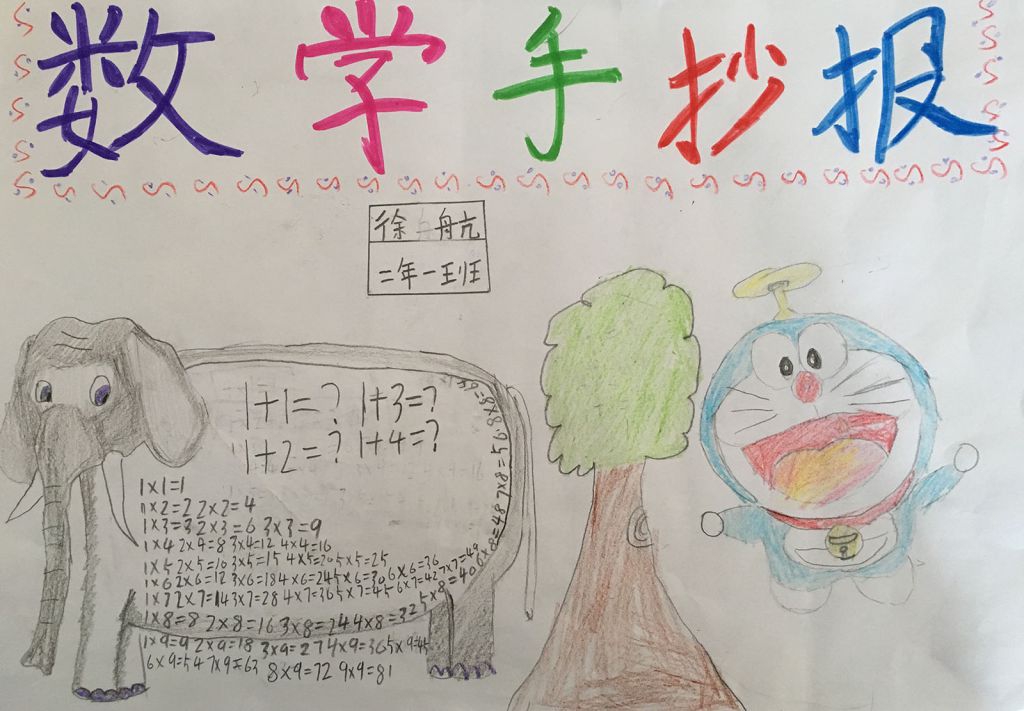 数学手抄报
徐航
二年一班
1+1=? 1+3=?
1+2=? 1+4=?
1×1=1
1×2=2 2×2=4
1×3=3 2×3=6 3×3=9
1×4 2×4=8 3×4=12 4×4=16
1×5 2×5=10 3×5=15 4×5=20 5×5=25
1×6 2×6=12 3×6=18 4×6=24 5×6=30 6×6=36
1×7 2×7=14 3×7=28 4×7=36 5×7=45 6×7=42 7×7=49
1×8=8 2×8=16 3×8=24 4×8=32 5×8=40 6×8=48 7×8=56 8×8=
1×9=9 2×9=18 3×9=27 4×9=36 5×9=45
6×9=54 7×9=63 8×9=72 9×9=81